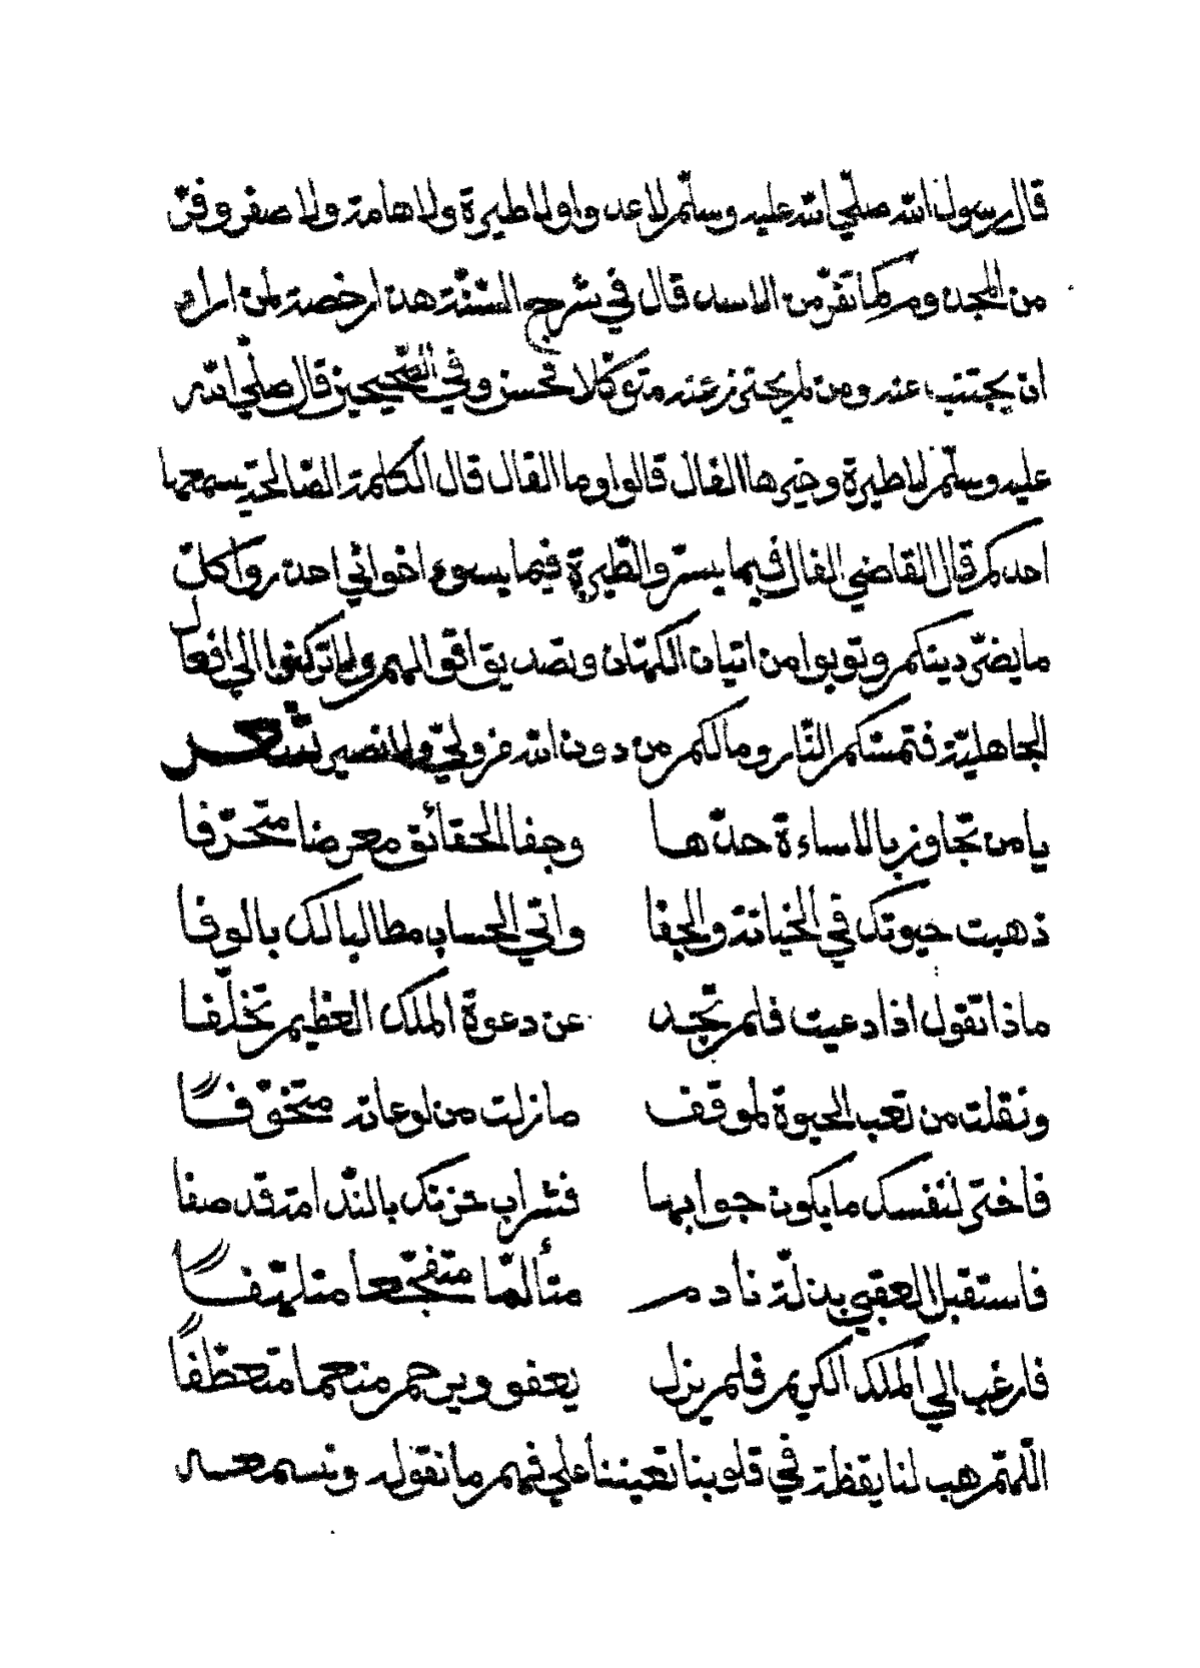 قال رسول الله صلّي الله عليه وسلّم لا عدوا ولا طيرة ولا هامة ولا صفر وفرّ
من المجذوم كما تفرّ من الاسد قال في شرح السّنّة هذا رخصة لمن اراد
ان يجتنب عنه ومن لم يحترز عنه متوكّلا فحسن وفي الصّحيحين قال صلّي الله
عليه وسلّم لا طيرة وخيرها الفال قالوا وما الفال قال الكلمة الصّالحة يسمعها
احدكم قال القاضي الفال فيما يسرّ والطّيرة فيما يسوء اخواني احذروا كلّ
ما يضرّ دينكم وتوبوا من اتيان الكهّان وتصديق اقوالهم ولا تركنوا الي افعال
الجاهليّة فتمسّكم النّار وما لكم من دون الله من وليّ ولا نصير شعر
يا من تجاوز بالاساءة حدّها وجفا الحقائق معرضا متحرّفا
ذهبت حيوتك في الخيانة والجفا واتي الحساب مطالبا لك بالوفا
ماذا تقول اذا دعيت فلم تجد عن دعوة الملك العظيم تخلّفا
ونقلت من تعب الحيوة لموقف ما زلت من لوعاته متخوّفًا
فاختر لنفسك ما يكون جوابها فشراب حزنك بالنّدامة قد صفا
فاستقبل العقبي بذلّة نادم متألّما متفجّعا متلهّفًا
فارغب الي الملك الكريم فلم يزل يعفو ويرحم منعما متعطّفًا
اللّهمّ هب لنا يقظة في قلوبنا تعيننا علي فهم ما نقوله ونسمعه